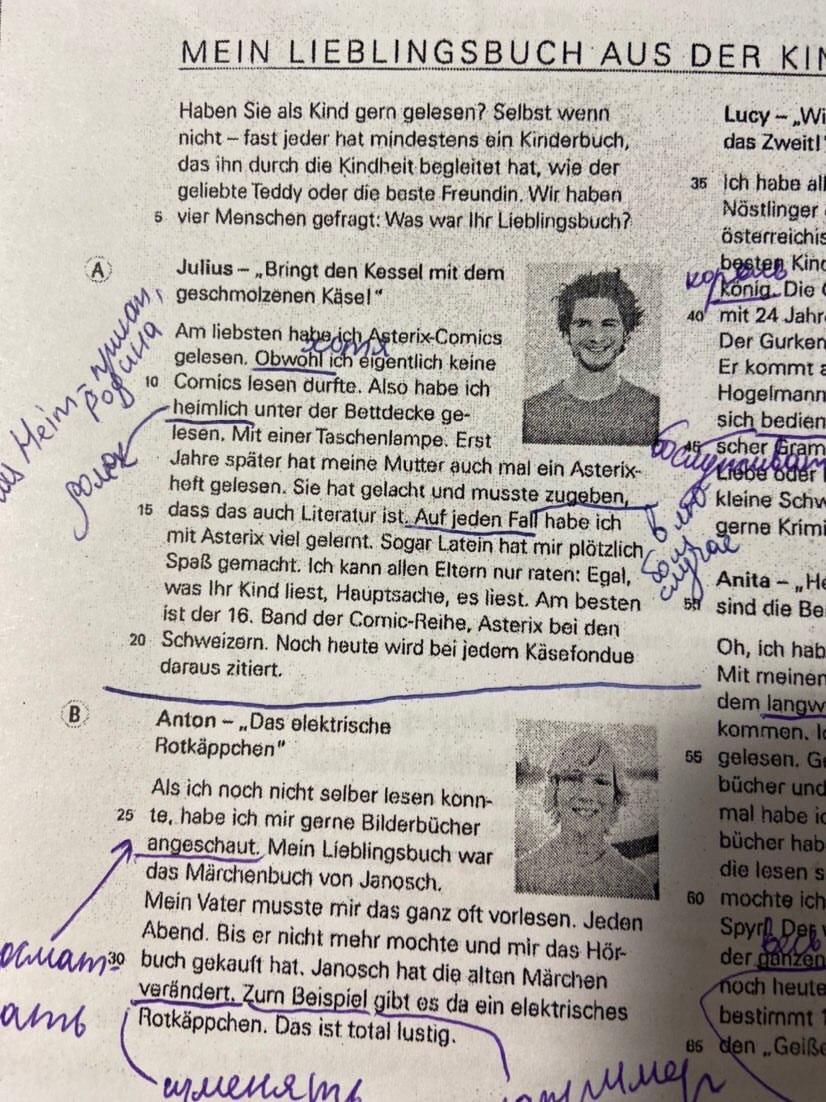 MEIN LIEBLINGSBUCH AUS DER KIN
Haben Sie als Kind gern gelesen? Selbst wenn
nicht – fast jeder hat mindestens ein Kinderbuch,
das ihn durch die Kindheit begleitet hat, wie der
geliebte Teddy oder die beste Freundin. Wir haben
5 vier Menschen gefragt: Was war Ihr Lieblingsbuch?
A
Julius – „Bringt den Kessel mit dem
geschmolzenen Käse!"
Am liebsten habe ich Asterix-Comics
хотя
gelesen. Obwohl ich eigentlich keine
10 Comics lesen durfte. Also habe ich
heimlich unter der Bettdecke ge-
lesen. Mit einer Taschenlampe. Erst
Jahre später hat meine Mutter auch mal ein Asterix-
heft gelesen. Sie hat gelacht und musste zugeben,
15 dass das auch Literatur ist. Auf jeden Fall habe ich
mit Asterix viel gelernt. Sogar Latein hat mir plötzlich
Spaß gemacht. Ich kann allen Eltern nur raten: Egal,
was Ihr Kind liest, Hauptsache, es liest. Am besten
ist der 16. Band der Comic-Reihe, Asterix bei den
20 Schweizern. Noch heute wird bei jedem Käsefondue
daraus zitiert.
Heim-
родина
в любом
случае
B
Anton – „Das elektrische
Rotkäppchen"
Als ich noch nicht selber lesen konn-
25 te, habe ich mir gerne Bilderbücher
angeschaut. Mein Lieblingsbuch war
das Märchenbuch von Janosch.
Mein Vater musste mir das ganz oft vorlesen. Jeden
Abend. Bis er nicht mehr mochte und mir das Hör-
30 buch gekauft hat. Janosch hat die alten Märchen
verändert. Zum Beispiel gibt es da ein elektrisches
Rotkäppchen. Das ist total lustig.
осмат
ать
изменять
Lucy – „Wi
das Zweit!"
35 Ich habe all
Nöstlinger
österreichis
besten Kind
король
könig. Die
40 mit 24 Jahr
Der Gurken
Er kommt a
Hogelmann
sich bedien
45 scher Gram
обслуживат
Liebe oder
kleine Schw
gerne Krimi
Anita – „He
50 sind die Be
Oh, ich hab
Mit meinen
dem langw
kommen. Ic
55 gelesen. Ge
bücher und
mal habe ic
bücher hab
die lesen s
60 mochte ich
Spyri. Der
весь
der ganzen
noch heute
bestimmt 1
65 den „Geiße